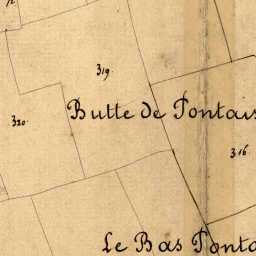 319
Butte de Pontais
320
316
Le Bas Ponta